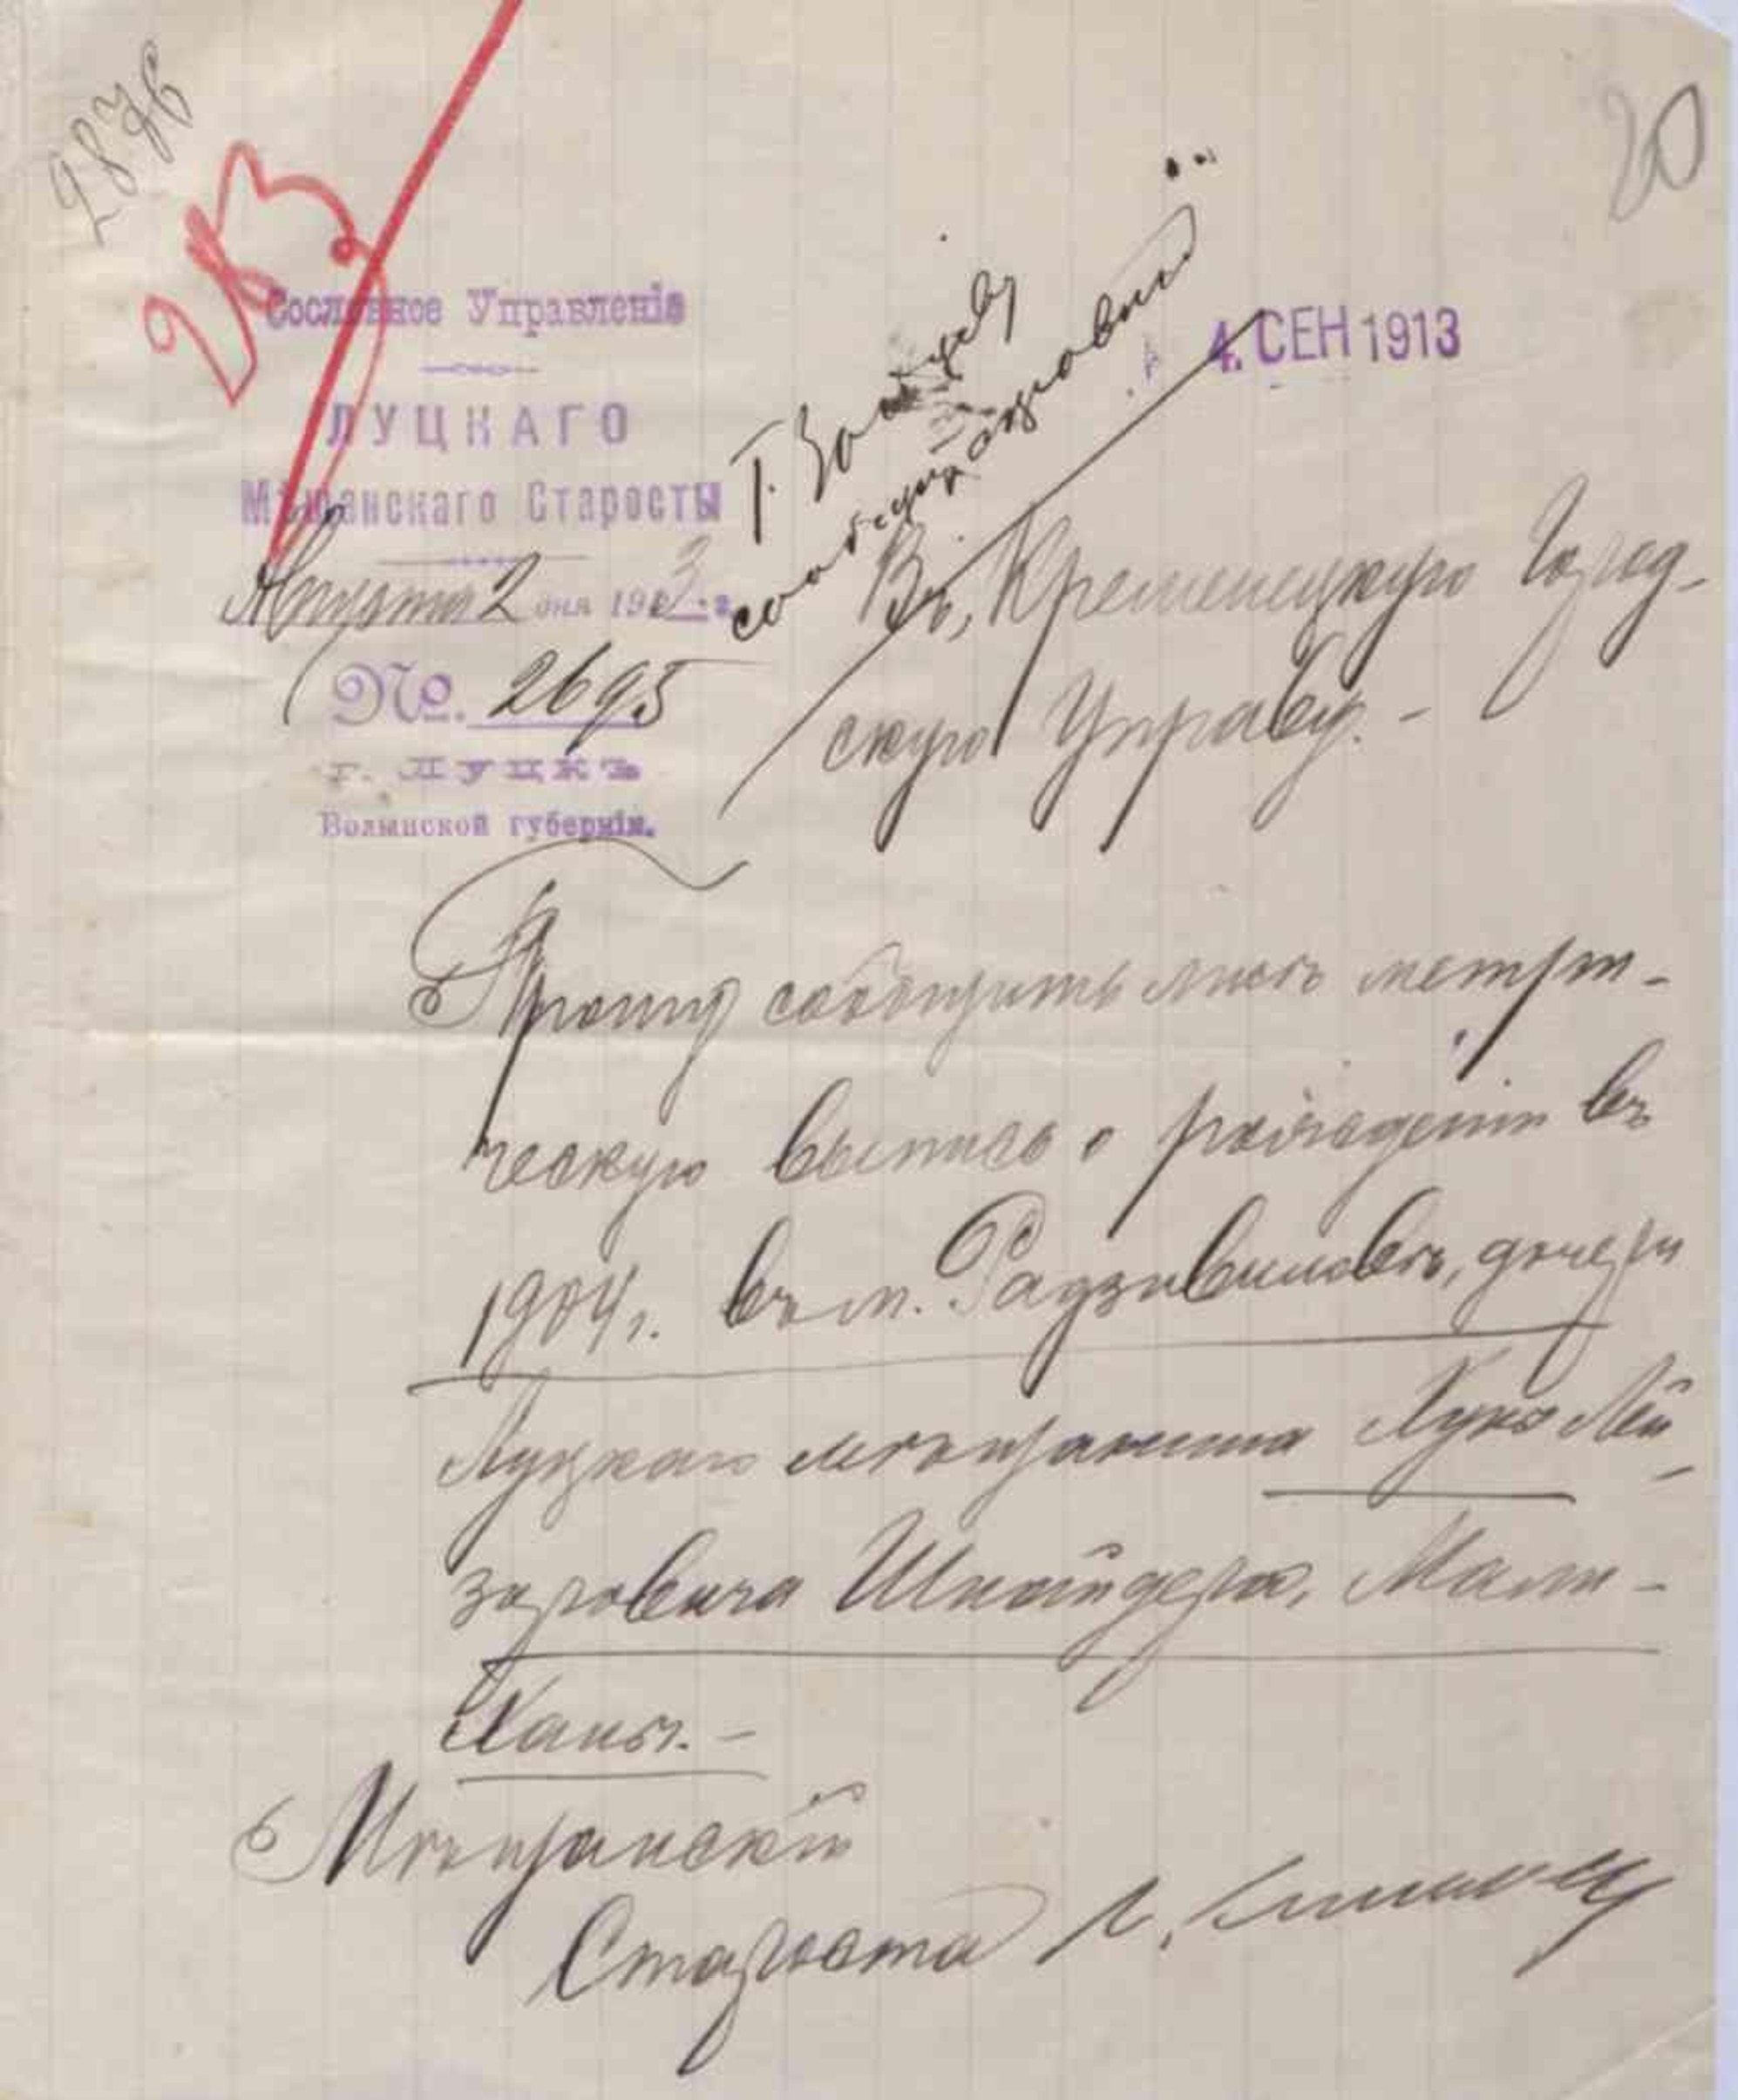 2876
20
Сословное Управленіе
ЛУЦКАГО
Мѣщанскаго Старосты
Августа 2 дня 1913 г.
№. 2695
г. ЛУЦКЪ
Волынской губерніи.
4. СЕН 1913
Г.
Въ Кременецкую Город-
скую Управу. -
Прошу сообщить мнѣ метри-
ческую выпись о рожденіи въ
1904 г. въ м. Радзивиловѣ, дочери
Луцкаго мѣщанина Хуны Лей-
зоровича Шнайдера, Мали-
Ханы. -
Мѣщанскій
Староста